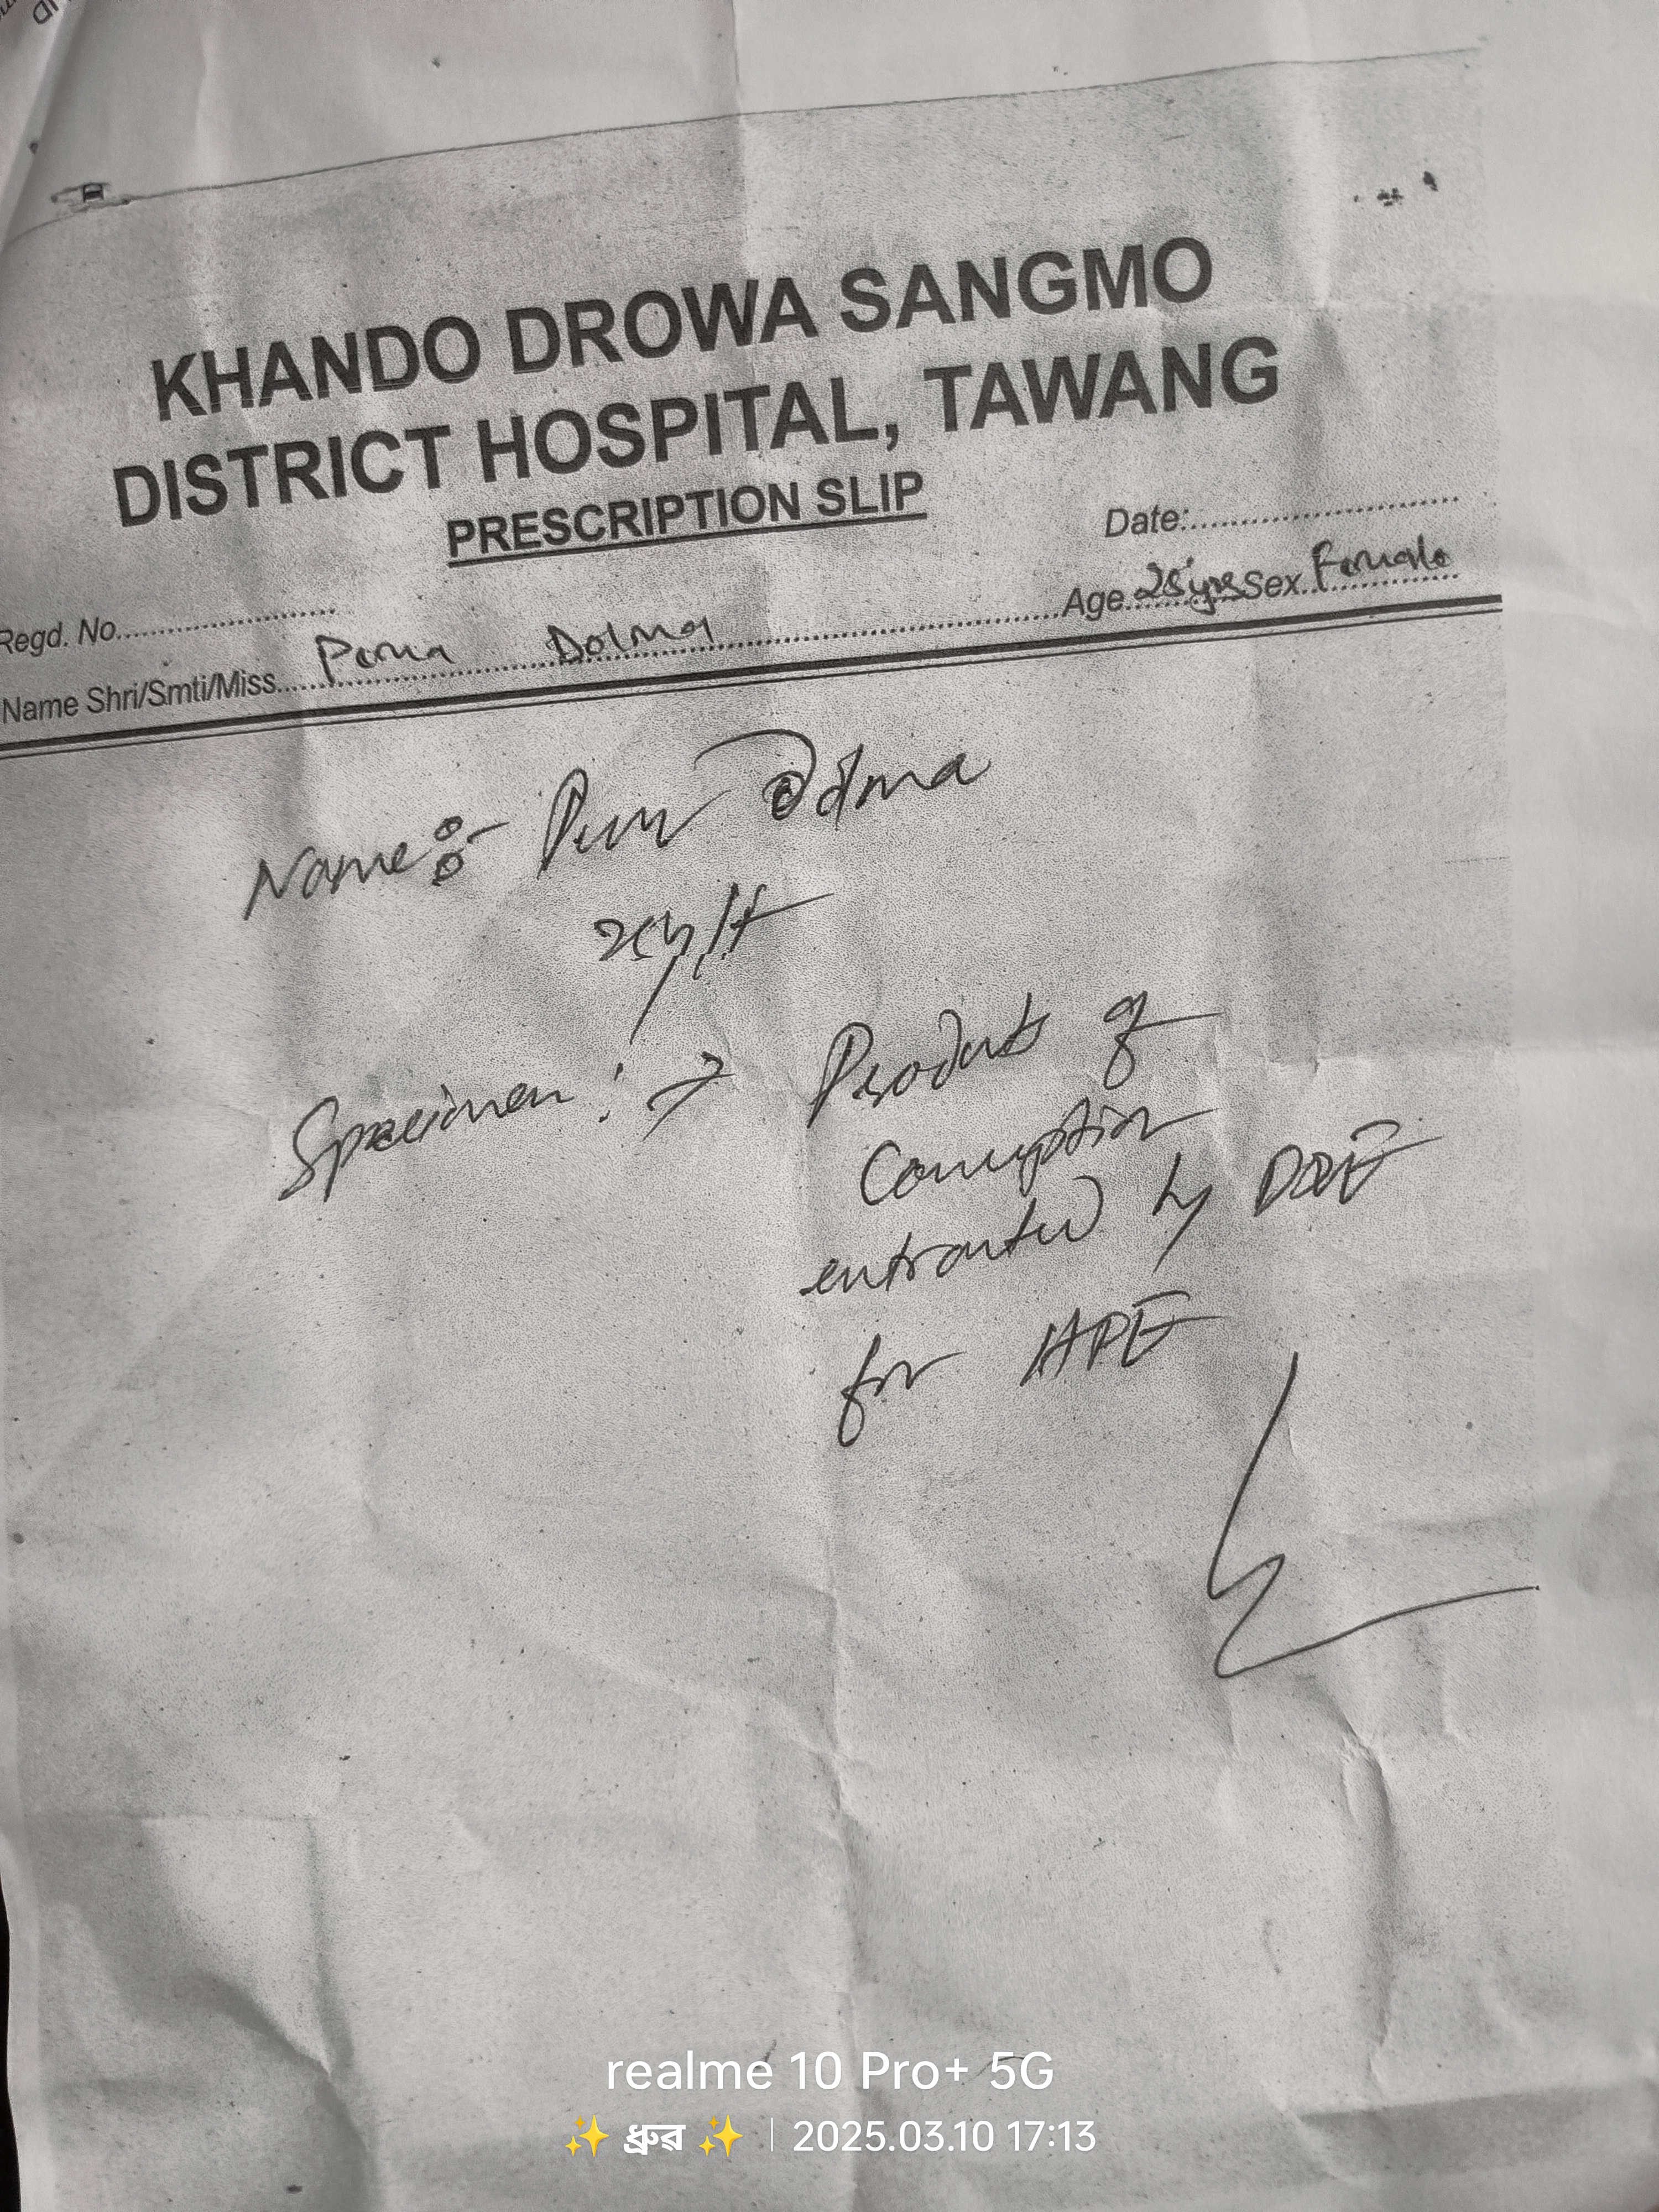 KHANDO DROWA SANGMO
DISTRICT HOSPITAL, TAWANG
PRESCRIPTION SLIP
Date:
Regd. No.
Name Shri/Smti/Miss Pema Dolma Age 28 yrs Sex Female
Name:- Pema Dolma
Specimen :→ Product of
Conception
extracted by
for HPE
realme 10 Pro+ 5G
✨ ধ্ৰুৱ ✨ | 2025.03.10 17:13